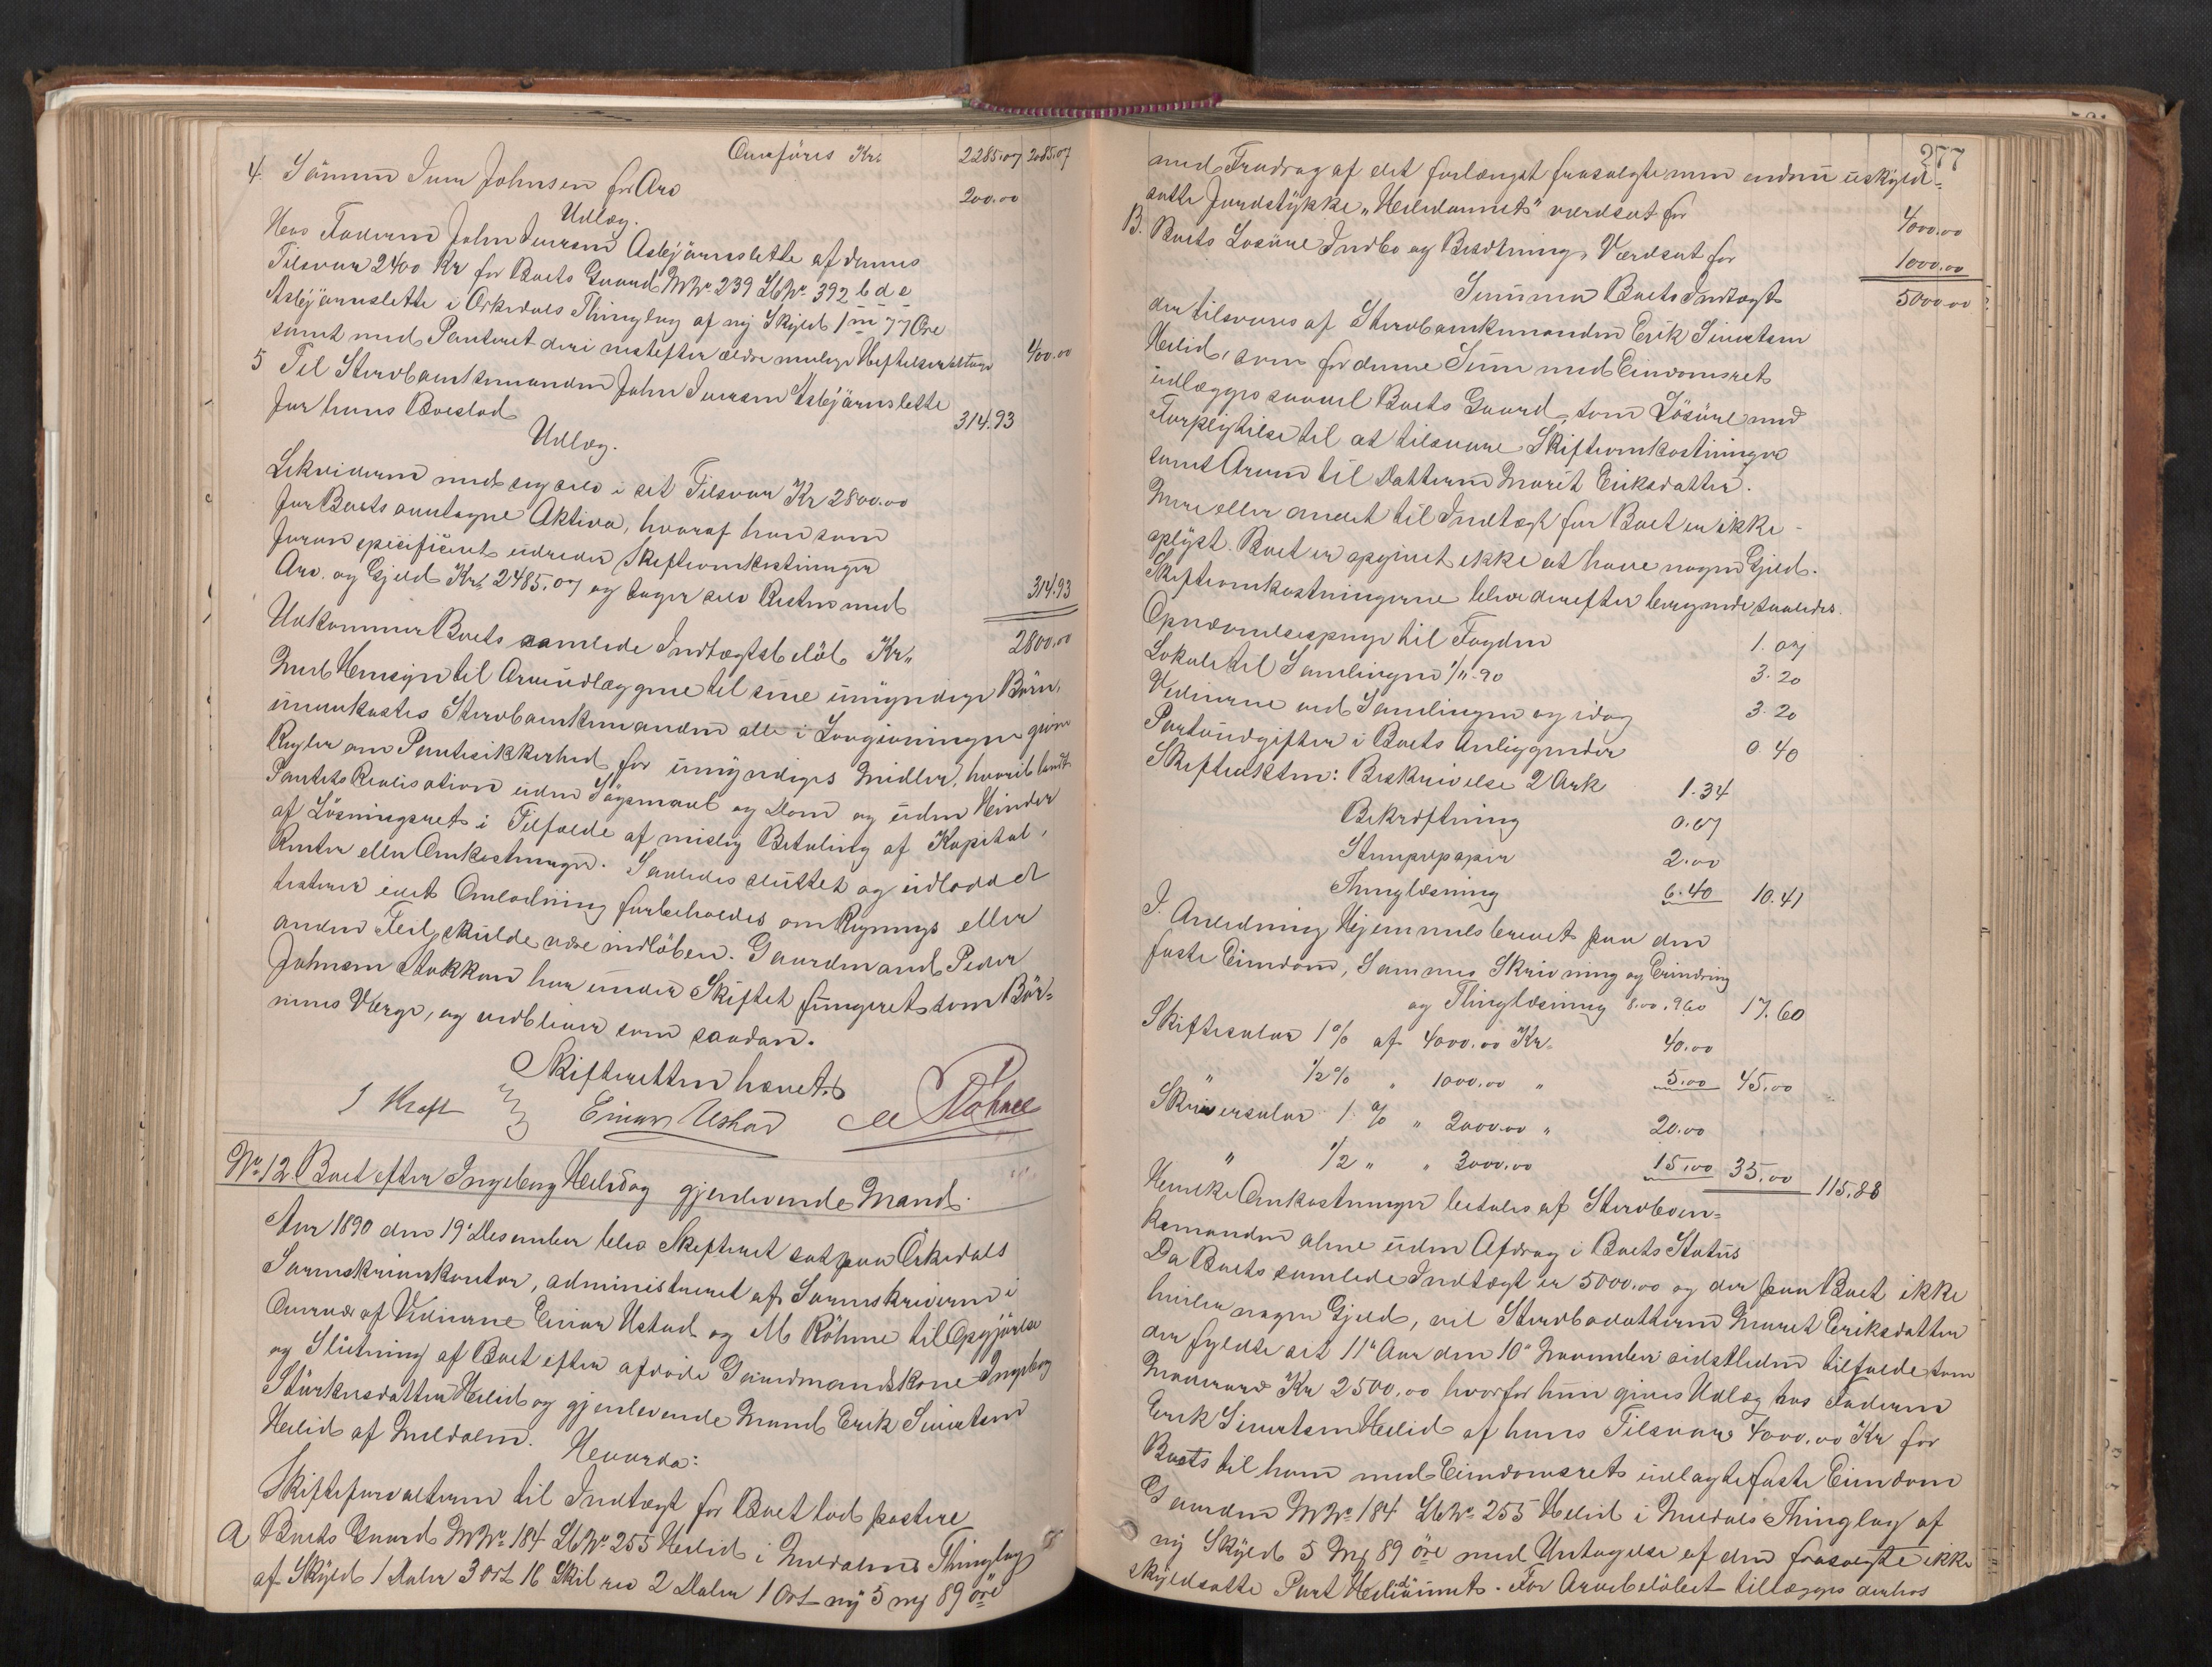 Overføres Kr. 2285.07 2085.07
4. Sönnen Iver Johnsen for Arv 200.00
Udlæg.
Hos Faderen John Iversen Asbjørnslette af dennes
Tilsvar 2400 Kr for Boets Gaard MNo 239 LbNo 392 b d e
Asbjørnslette i Orkedals Thinglag af ny Skyld 1 m 77 Öre
samt med Panteret deri nestefter ældre mulige Heftelser 400.00
5 Til Stervboenkemanden John Iversen Asbjörnslette
for hans Boeslod 314.93
Udlæg.
Likviderer med sig selv i sit Tilsvar Kr 2800.00
for Boets anntagne Aktiva, hvoraf han som
foran specificeret udreder Skifteomkostninger
Arv og Gjeld Kr. 2485.07 og tager selv Resten med 314.93
Udkommer Boets samlede Indtægtsbelöb Kr. 2800.00
Med Hensyn til Arveudlæggene til sine umyndige Börn,
underkastes Stervboenkemanden alle i Lovgivningen givne
Regler om Pantesikkerhed for umyndiges Midler, hvoriblandt
Pantets Realisation uden Sögsmaal og Dom og uden Hinder
af Lösningsret i Tilfælde af mislig Betaling af Kapital,
Renter eller Omkostninger. Saaledes sluttet og udloddet
hvorved Omlodning forbeholdes om Regnings eller
anden Feil skulde være indlöben. Gaardmand Peder
Johnsen Stokkan har under Skiftet fungeret som Bör-
nenes Værge, og vedbliver som saadan.
Skifteretten hævet.
J Kraft Einar Ustad M Röhme
No 12 Boet efter Ingeborg Heilid og gjenlevende Mand.
Aar 1890 den 19de Desember blev Skifteret sat paa Orkedals
Sorenskriverkontor, administreret af Sorenskriveren i
Overvær af Vidnerne Einar Ustad og M Röhme til Opgjörelse
og Slutning af Boet efter afdøde Gaardmandskone Ingeborg
Størkersdatter Heilid og gjenlevende Mand Erik Sivertsen
Heilid af Meldalen. Hvorda:
Skifteforvalteren til Indtægt for Boet lod postere
A Boets Gaard MNo 184 LbNo 255 Heilid i Meldalens Thinglag
af Skyld 1 Daler 3 Ort 16 Skil rev 2 Daler 1 Ort ny 5 m 89 öre
277
med Fradrag af det forlængst frasolgte men endnu uskyld-
satte Jordstykke "Heilidaunet" værdsat for 4000.00
B. Boets Losöre Indbo og Besætning, Værdsat for 1000.00
Summa Boets Indtægt 5000.00
der tilsvares af Sterboenkemanden Erik Sivertsen
Heilid, som for denne Sum med Eiendomsret
udlægges saavel Boets Gaard som Lösöre med
Forpligtelse til at tilsvare Skifteomkostninger
samt Arven til Datteren Marit Eriksdatter.
Mere eller andet til Indtægt for Boet er ikke
oplyst. Boet er opgivet ikke at have nogen Gjeld.
Skifteomkostningerne blev derefter beregnede saaledes.
Opnævnelsespenge til Fogden 1.07
Lokale til Samlingen 1/11-90 3.20
Vidnerne ved Samlingen og idag 3.20
Portoudgifter i Boets Anliggender 0.40
Skifteakten: Beskrivelse 2 Ark 1.34
Bekræftning 0.67
Stempepapir 2.00
Thinglæsning 6.40 10.41
I Anledning Hjemmelsbrevet paa den
faste Eiendom, Sammes Skrivning og Erindring
og Thinglæsning 8.00. 9.60 17.60
Skiftesalær 1% af 4000.00 Kr. 40.00
" 1/2% " 1000.00 " 5.00 45.00
Skriversalær 1. % " 2000.00 " 20.00
" 1/2 " " 3000.00 15.00 35.00 115.88
Hvilke Omkostninger betales af Sterboen-
kemanden alene uden Afdrag i Boets Status
Da Boets samlede Indtægt er 5000.00 og der paa Boet ikke
hviler nogen Gjeld, vil Sterbodatteren Maret Eriksdatter
der fyldte sit 11te Aar den 10de November sidstleden tilfalde som
Mødrearv Kr 2500.00 hvorfor hun gives Udlæg hos Faderen
Erik Sivertsen Heilid af hans Tilsvar 4000.00 Kr for
Boets til ham med Eiendomsret udlagte faste Eiendom
Gaarden MNo 184 LbNo 255 Heilid i Meldals Thinglag af
ny Skyld 5 M 89 öre med Untagelse af den frasolgte ikke
skyldsatte Part Heilidaunet. For Arvebelöbet tillægges derhos